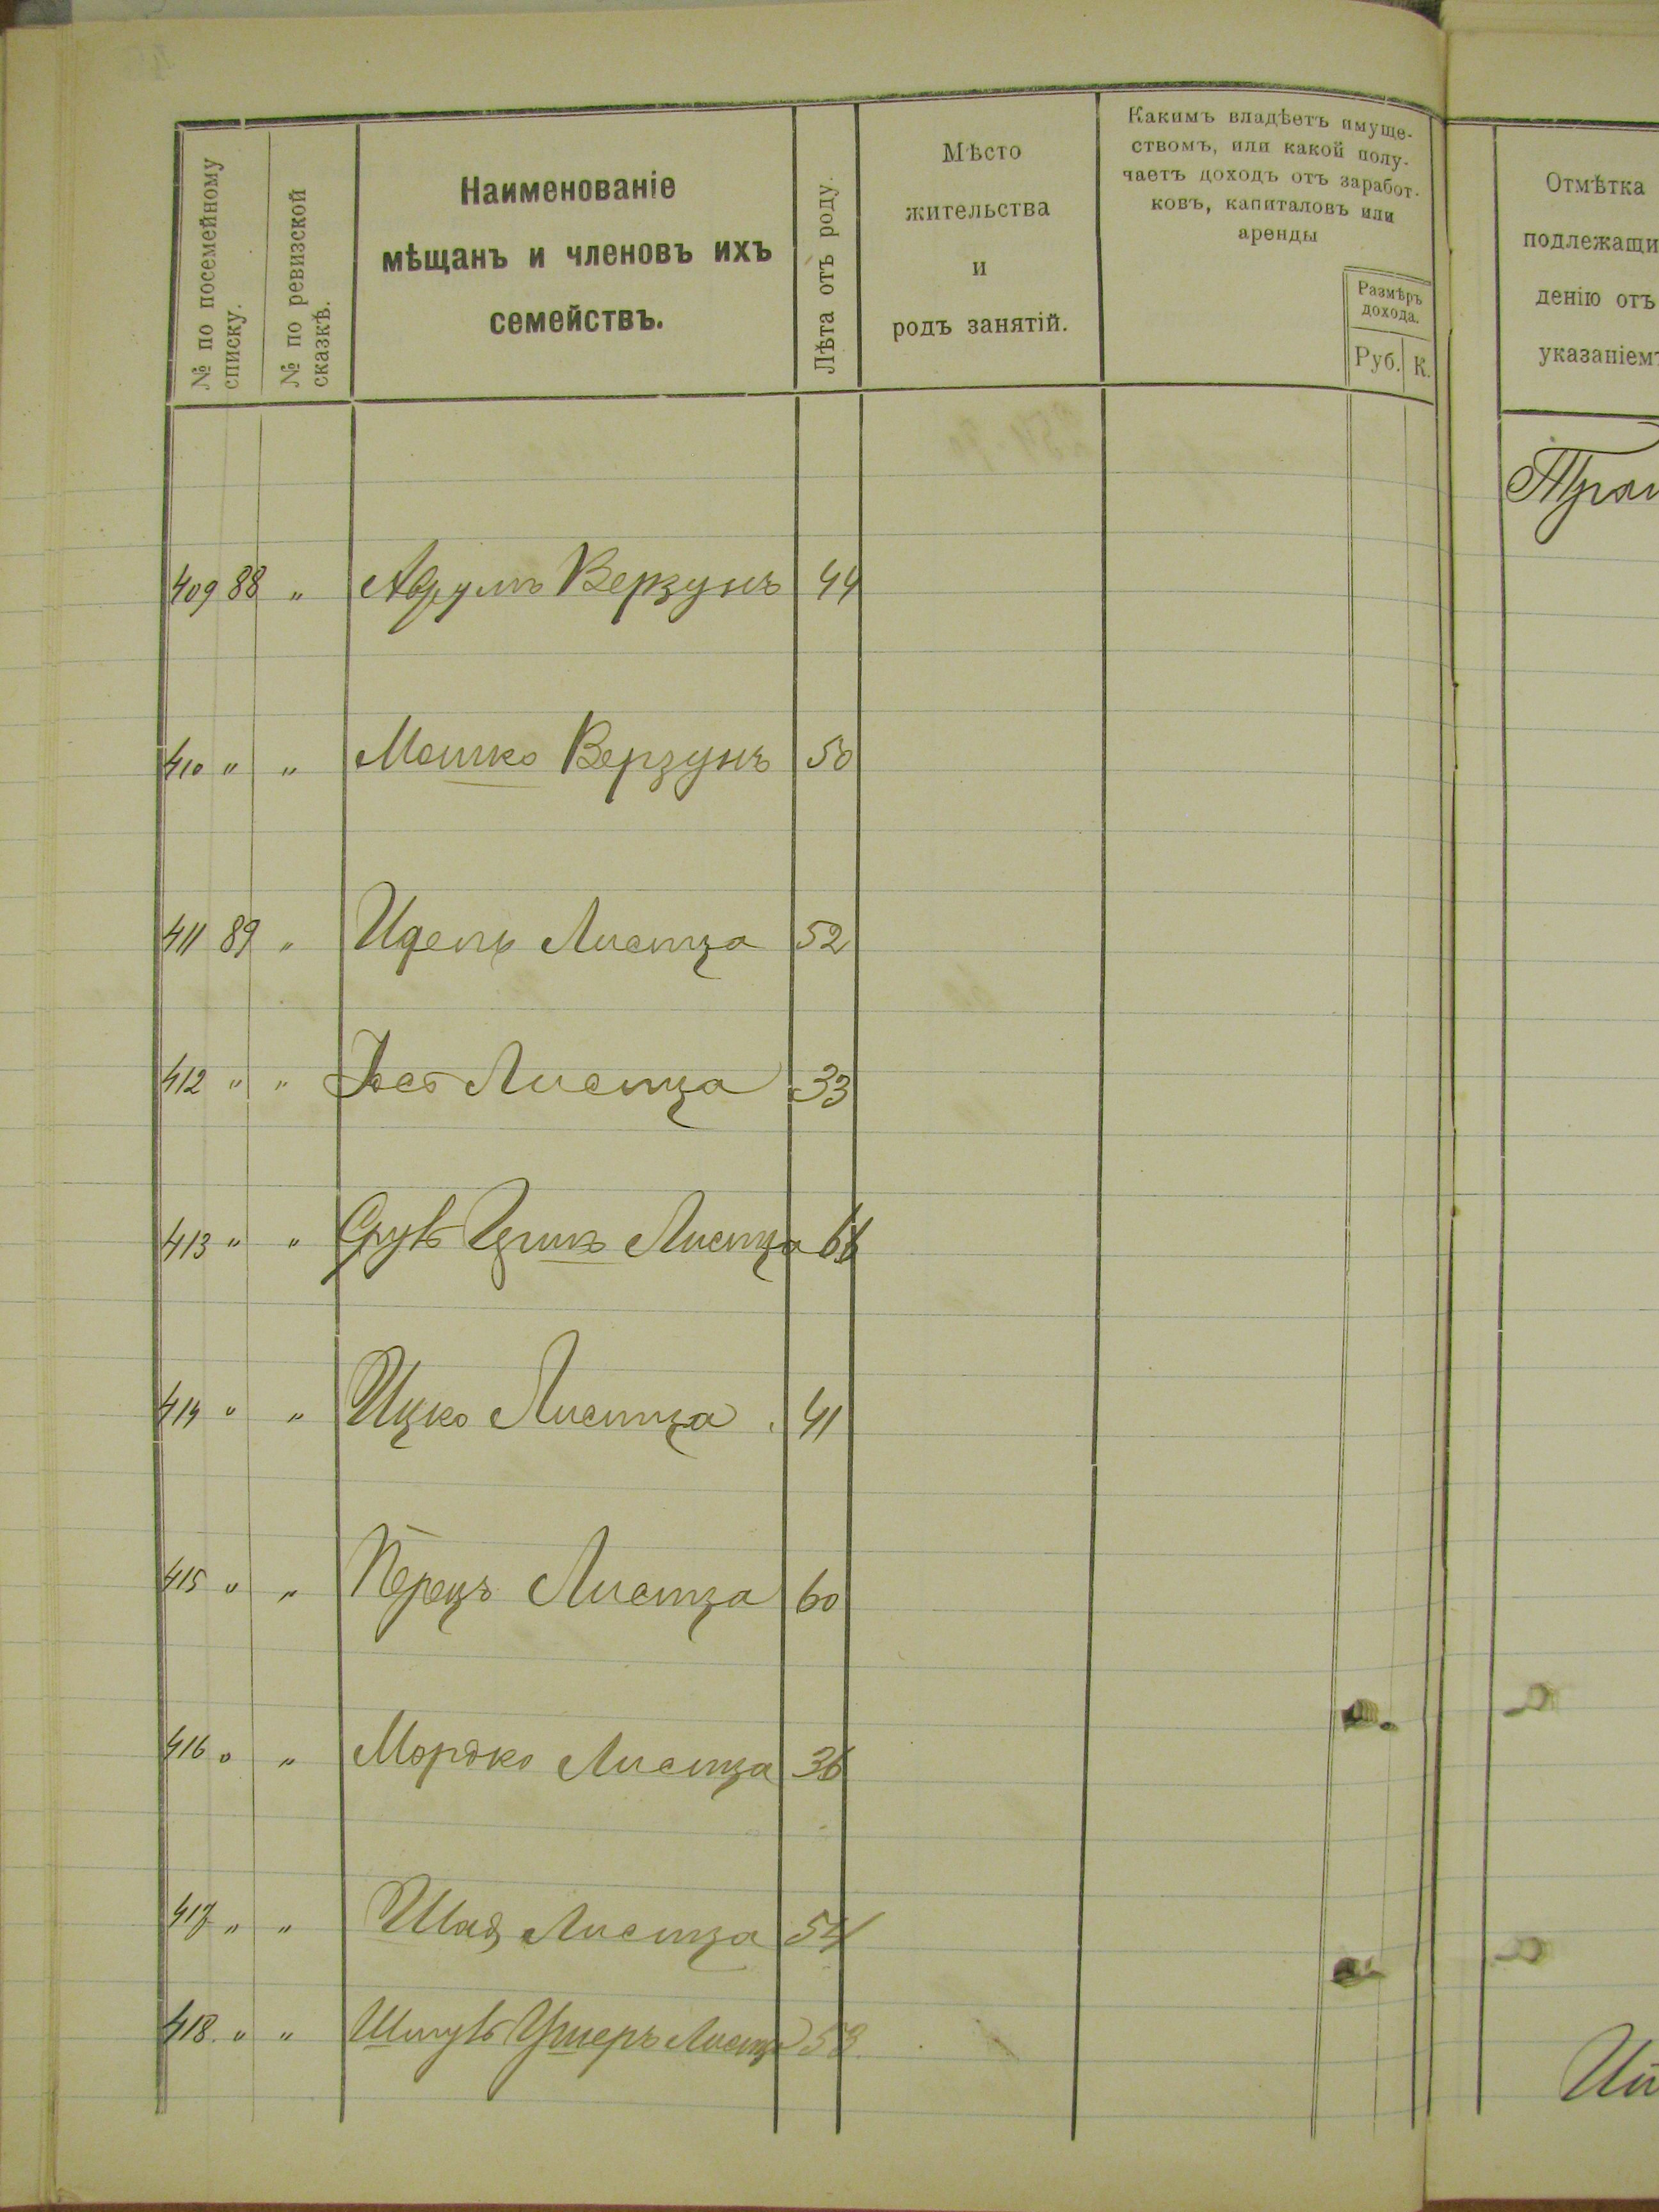 № по посемейному
списку.
№ по ревизской
сказкѣ.
Наименованіе
мѣщанъ и членовъ ихъ
семействъ.
Лѣта отъ роду.
Мѣсто
жительства
и
родъ занятій.
Какимъ владѣетъ имуще-
ствомъ, или какой полу-
чаетъ доходъ отъ заработ-
ковъ, капиталовъ или
аренды
Размѣръ
дохода.
Руб. К.
Отмѣтка
подлежащи
денію отъ
указаніемъ
409 88 „ Верзунъ 44
410 „ „ Мошко Верзунъ 50
411 89 „ Идель Листza 52
412 „ „ Іось Листза 33
413 „ „ Срулъ Листза 66
414 „ „ Ицко Листза 41
415 „ „ Перецъ Листза 60
416 „ „ Мордко Листза 36
417 „ „ Листза 54
418. „ „ Шмулъ Ушеръ Листза 53